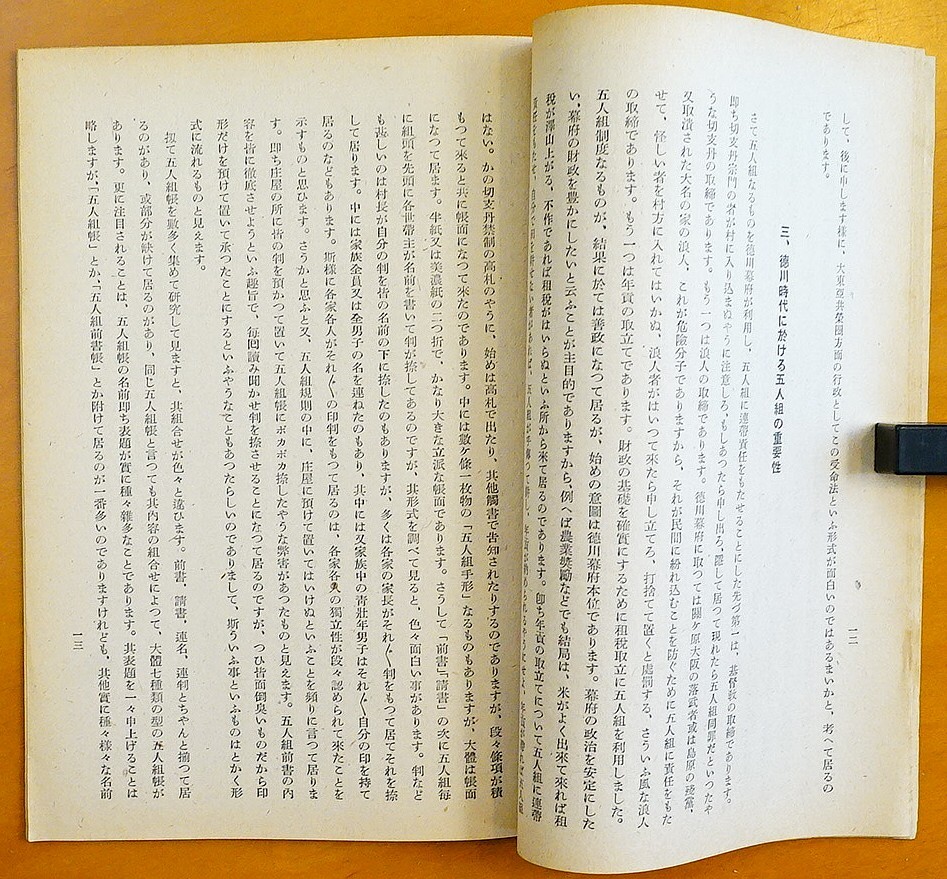 して、後に申します樣に、大東亞共榮圈方面の行政としてこの受命法といふ形式が面白いのではあるまいかと、考へて居るの
であります。
三、德川時代に於ける五人組の重要性
さて五人組なるものを德川幕府が利用し、五人組に連帶責任をもたせることにした先づ第一は、基督敎の取締であります。
卽ち切支丹宗門の者が村に入り込まぬやうに注意しろ、もしあつたら申し出ろ、隱して居つて現れたら五人組同罪だといつたや
うな切支丹の取締であります。もう一つは浪人の取締であります。德川幕府に取つては關ケ原大阪の落武者或は島原の殘黨、
又取潰された大名の家の浪人、これが危險分子でありますから、それが民間に紛れ込むことを防ぐために五人組に責任をもた
せて、怪しい者を村方に入れてはいかぬ、浪人者がはいつて來たら申し立てろ、打捨てて置くと處罰する、さういふ風な浪人
の取締であります。もう一つは年貢の取立てであります。財政の基礎を確實にするために租稅取立に五人組を利用しました。
五人組制度なるものが、結果に於ては善政になつて居るが、始めの意圖は德川幕府本位であります。幕府の政治を安定にした
い、幕府の財政を豐かにしたいと云ふことが主目的でありますから、例へば農業獎勵などでも結局は、米がよく出來て來れば租
稅が澤山上がる、不作であれば租稅がはいらぬといふ所から來て居るのであります。卽ち年貢の取立てについて五人組に連帶
一二
はない。かの切支丹禁制の高札のやうに、始めは高札で出たり、其他觸書で告知されたりするのでありますが、段々條項が積
もつて來ると共に帳面になつて來たのであります。中には數ケ條一枚物の「五人組手形」なるものもありますが、大體は帳面
になつて居ます。半紙又は美濃紙の二つ折で、かなり大きな立派な帳面であります。さうして「前書」「請書」の次に五人組每
に組頭を先頭に各世帶主が名前を書いて判が捺してあるのですが、其形式を調べて見ると、色々面白い事があります。判など
も甚しいのは村長が自分の判を皆の名前の下に捺したのもありますが、多くは各家の家長がそれ〲判をもつて居てそれを捺
して居ります。中には家族全員又は全男子の名を連ねたのもあり、其中には又家族中の靑壯年男子はそれ〲自分の印を持て
居るのなどもあります。斯樣に各家各人がそれ〲の印判をもつて居るのは、各家各人の獨立性が段々認められて來たことを
示すものと思ひます。さうかと思ふと又、五人組規則の中に、庄屋に預けて置いてはいけぬといふことを頻りに言つて居りま
す。卽ち庄屋の所に皆の判を預かつて置いて五人組帳にボカボカ捺したやうな弊害があつたものと見えます。五人組前書の內
容を皆に徹底させようといふ趣旨で、每囘讀み聞かせ判を捺させることになつて居るのですが、つひ皆面倒臭いものだから印
形だけを預けて置いて承つたことにするといふやうなこともあつたらしいのでありまして、斯ういふ事といふものはとかく形
式に流れるものと見えます。
扨て五人組帳を數多く集めて硏究して見ますと、其組合せが色々と違ひます。前書、請書、連名、連判とちやんと揃つて居
るのがあり、或部分が缺けて居るのがあり、同じ五人組帳と言つても其內容の組合せによつて、大體七種類の型の五人組帳が
あります。更に注目されることは、五人組帳の名前卽ち表題が實に種々雜多なことであります。其表題を一々申上げることは
略しますが、「五人組帳」とか、「五人組前書帳」とか附けて居るのが一番多いのでありますけれども、其他實に種々樣々な名前
一三